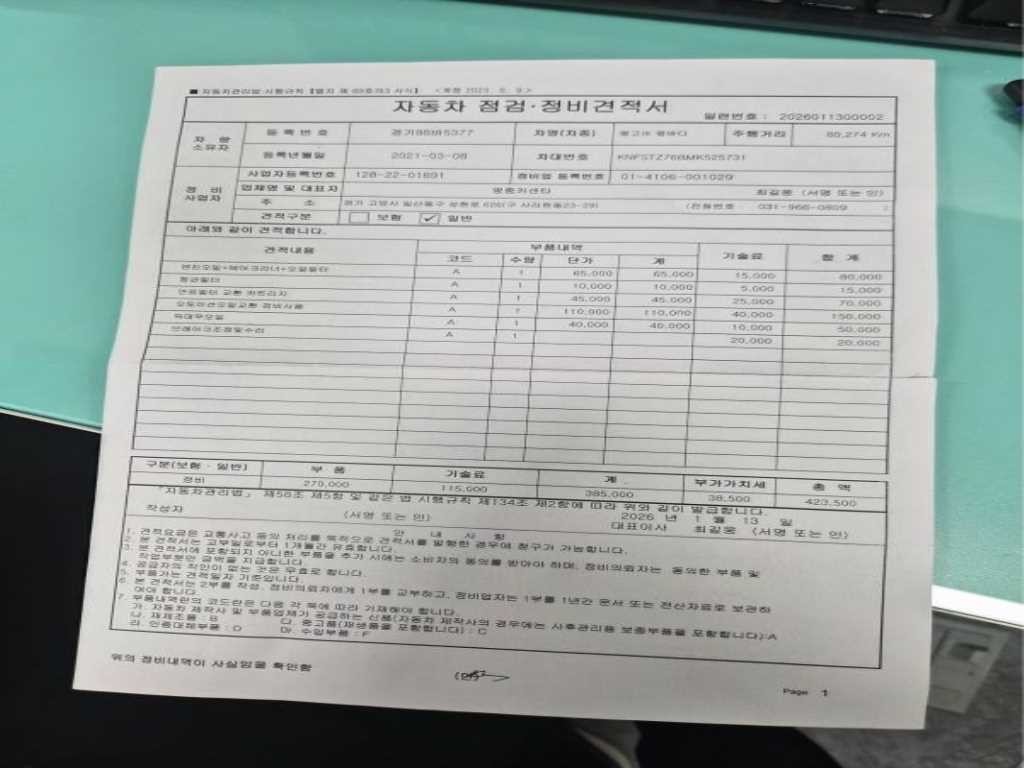 ■ 자동차관리법 시행규칙 [별지 제 89호의3 서식] <개정 2023. 6. 9.>
자동차 점검·정비견적서
일련번호 : 2026011300002
차량 소유자
등록번호 차명(차종) 주행거리 80,274 Km
등록년월일 2021-03-08 차대번호
정비 사업자
사업자등록번호 128-22-01891 정비업 등록번호 01-4106-001029
업체명 및 대표자 최길웅 (서명 또는 인)
주 소 경기 고양시 일산동구 (전화번호 : 031-966-0809 )
견적구분 □ 보험 ☑ 일반
아래와 같이 견적합니다.
견적내용 부품내역 기술료 합 계
코드 수량 단가 계
엔진오일+에어크리너+오일필터 A 1 65,000 65,000 15,000 80,000
향균필터 A 1 10,000 10,000 5,000 15,000
연료필터 교환 카트리지 A 1 45,000 45,000 25,000 70,000
오토미션오일교환 정비사용 A 1 110,000 110,000 40,000 150,000
A 1 40,000 40,000 10,000 50,000
브레이크조정및수리 A 1 20,000 20,000
구분(보험 · 일반) 부 품 기술료 계 부가가치세 총 액
정비 270,000 115,000 385,000 38,500 423,500
『자동차관리법』 제58조 제5항 및 같은 법 시행규칙 제134조 제2항에 따라 위와 같이 발급합니다.
2026 년 1 월 13 일
작성자 (서명 또는 인) 대표이사 최길웅 (서명 또는 인)
안 내 사 항
1. 견적요금은 교통사고 등의 처리를 목적으로 견적서를 발행한 경우에 청구가 가능합니다.
2. 본 견적서는 교부일로부터 1개월간 유효합니다.
3. 본 견적서에 포함되지 아니한 부품을 추가 시에는 소비자의 동의를 받아야 하며, 정비의뢰자는 동의한 부품 및
작업부분만 금액을 지급합니다.
4. 공급자의 직인이 없는 것은 무효로 합니다.
5. 부품가는 견적일자 기준입니다.
6. 본 견적서는 2부를 작성, 정비의뢰자에게 1부를 교부하고, 정비업자는 1부를 1년간 문서 또는 전산자료로 보관하
여야 합니다.
7. 부품내역란의 코드란은 다음 각 목에 따라 기재해야 합니다.
가. 자동차 제작사 및 부품업체가 공급하는 신품(자동차 제작사의 경우에는 사후관리용 보증부품을 포함합니다):A
나. 재제조품 : B 다. 중고품(재생품을 포함합니다) : C
라. 인증대체부품 : D 마. 수입부품 : F
위의 정비내역이 사실임을 확인함
(인)
Page 1